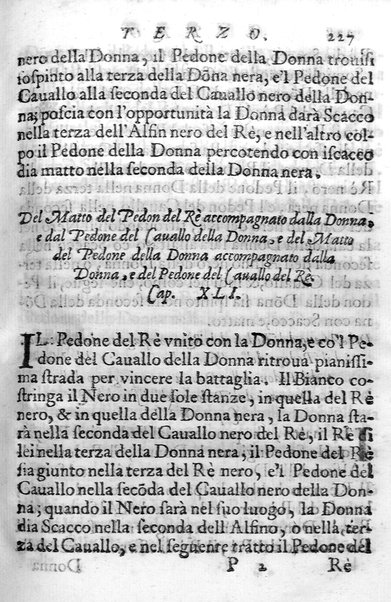 TERZO. 227
nero della Donna, il Pedone della Donna trouisi
iospinto alla terza della Dōna nera, e'l Pedone del
Cauallo alla seconda del Cauallo nero della Don-
na; poscia con l'opportunità la Donna darà Scacco
nella terza dell'Alfin nero del Rè, e nell'altro col
po il Pedone della Donna percotendo con iscacco
dia matto nella seconda della Donna nera.
Del Matto del Pedon del Rè accompagnato dalla Donna,
e dal Pedone del Cauallo della Donna, e del Matto
del Pedone della Donna accompagnato dalla
Donna, e del Pedone del Cauallo del Rè.
Cap. XLI.
IL Pedone del Rè vnito con la Donna, e co'l Pe-
done del Cauallo della Donna ritroua pianissi-
ma strada per vincere la battaglia. Il Bianco co-
stringa il Nero in due sole stanze, in quella del Rè
nero, & in quella della Donna nera, la Donna sta-
rà nella seconda del Cauallo nero del Rè, il Rè si
lei nella terza della Donna nera; il Pedone del Rè
sia giunto nella terza del Rè nero, e'l Pedone del
Cauallo nella secōda del Cauallo nero della Don-
na; quando il Nero sarà nel suo luogo, la Donna
dia Scacco nella seconda dell'Alfino, o nella ter-
za del Cauallo, e nel seguente tratto il Pedone del
P 2 Rè